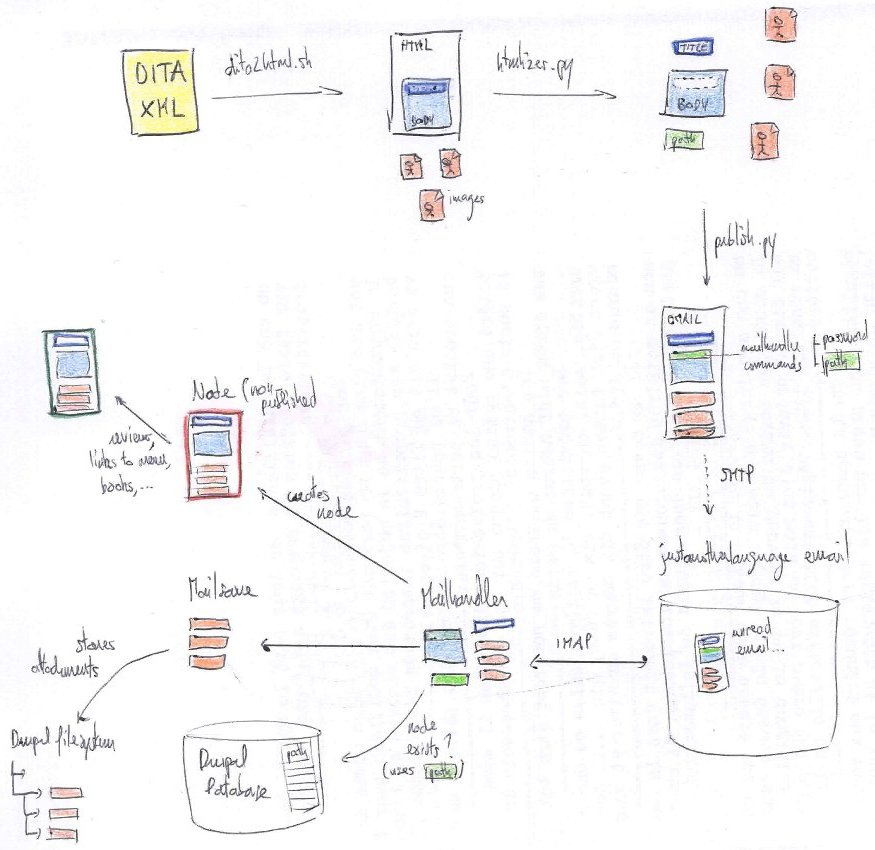 DITA
XML
dita2html.sh
HTML
BODY
images
htmlizer.py
TITLE
BODY
path
publish.py
EMAIL
mailhandler
commands
password
path
SMTP
justanotherlanguage email
unread
email...
IMAP
Mailhandler
creates
node
Node (non
published
review,
links to menu,
books,...
Mailsave
stores
attachments
Drupal filesystem
node
exists?
(uses path)
Drupal
Database
path